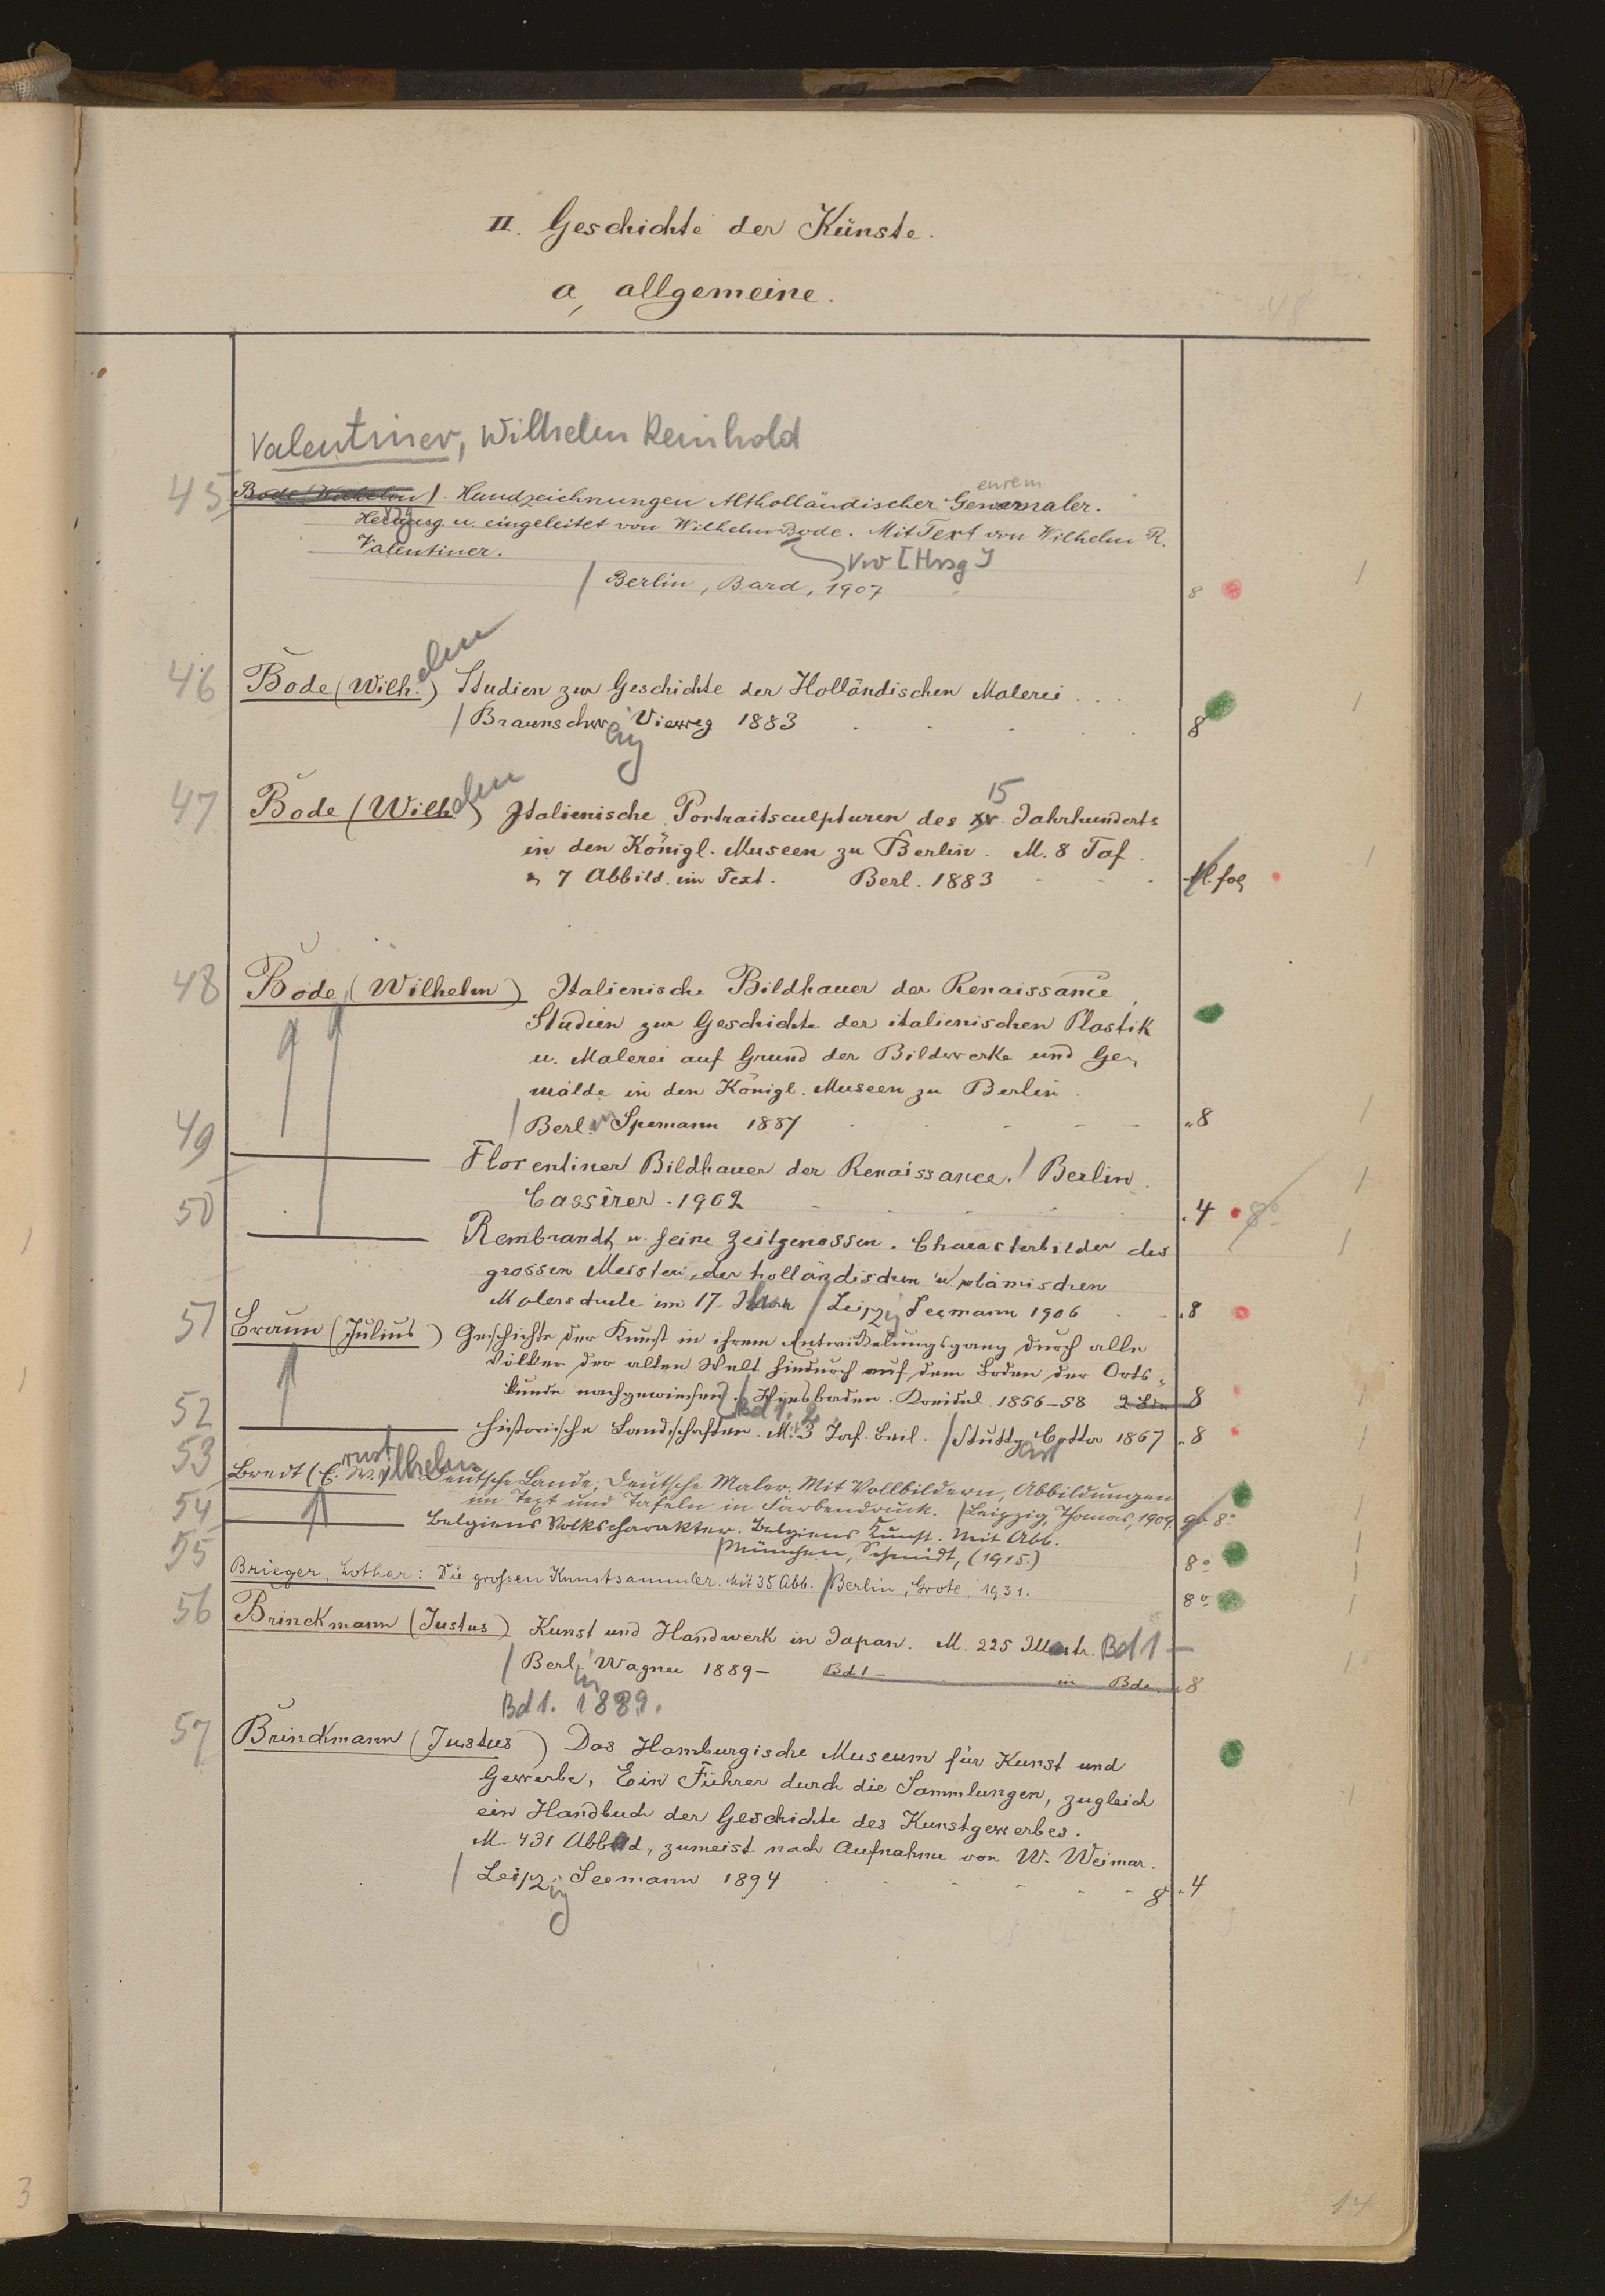 II. Geschichte der Künste.
a, allgemeine.
48
Valentiner, Wilhelm Reinhold
45 Bode (Wilhelm). Handzeichnungen Altholländischer Genremaler.
Herausg u. eingeleitet von Wilhelm Bode. Mit Text von Wilhelm R.
Valentiner.
Vw [Hrsg]
/ Berlin, Bard, 1907 8 1
46 Bode (Wilhelm) Studien zur Geschichte der Holländischen Malerei . . .
/ Braunschweig Vieweg 1883 8 1
15
47 Bode (Wilhelm) Italienische Portraitsculpturen des XV. Jahrhunderts
in den Königl. Museen zu Berlin. M. 8 Taf. 1
7 Abbild. im Text. Berl. 1883 - - - kl. fol
48 Bode (Wilhelm) Italienische Bildhauer der Renaissance,
Studien zur Geschichte der italienischen Plastik
u. Malerei auf Grund der Bildwerke und Ge-
mälde in den Königl. Museen zu Berlin.
/ Berlin Spemann 1887 . . - - - „8 1
49 ——— Florentiner Bildhauer der Renaissance. / Berlin. 1
Cassirer. 1902 . 4 8°
50 ——— Rembrandt u. seine Zeitgenossen. Charakterbilder der 1
grossen Meister der holländischen u vlämischen
Malerschule im 17. Jahrh / Leipzig Seemann 1906 . . „8
51 Braun (Julius) Geschichte der Kunst in ihrem Entwickelungsgang durch alle
Völker der alten Welt hindurch auf dem Boden der Orts-
kunde nachgewiesen. / Wiesbaden. Kreidel 1856-58 2 Bde 8 1
Bd 1. 2
52 ——— Historische Landschaften. M. 3 Taf. Beil. / Stuttgart Cotta 1867 „8 1
53 Bredt (Ernst Wilhelm) Deutsche Lande, Deutsche Maler. Mit Vollbildern, Abbildungen
im Text und Tafeln in Farbendruck. / Leipzig, Thomas, 1909. gr. 8° 1
54 ——— Belgiens Volkscharakter. Belgiens Kunst. Mit Abb. 1
/ München, Schmidt, (1915) 8°
55 Brieger, Lothar: Die grossen Kunstsammler. Mit 35 Abb. / Berlin, Grote, 1931. 8° 1
56 Brinckmann (Justus) Kunst und Handwerk in Japan. M. 225 Illustr. Bd 1 — 1
/ Berlin Wagner 1889- Bd 1 — in Bde „8 1
Bd 1. 1889.
57 Brinckmann (Justus) Das Hamburgische Museum für Kunst und
Gewerbe, Ein Führer durch die Sammlungen, zugleich
ein Handbuch der Geschichte des Kunstgewerbes. 1
M. 431 Abbild, zumeist nach Aufnahme von W. Weimar.
/ Leipzig Seemann 1894 . . - - - 8 „4
14
1
1
3